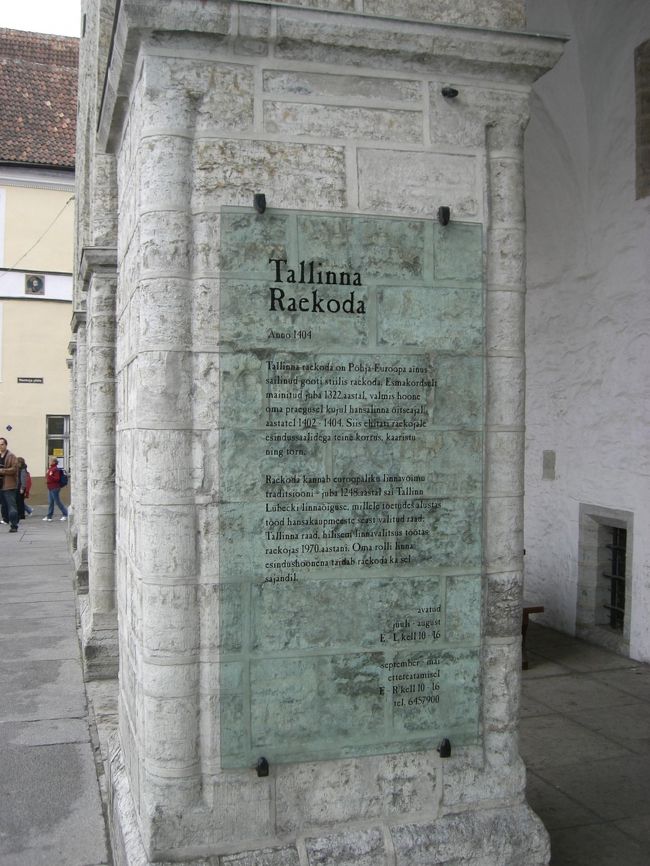 Tallinna
Raekoda
Anno 1404
Tallinna raekoda on Põhja-Euroopa ainus
säilinud gooti stiilis raekoda. Esmakordselt
mainitud juba 1322.aastal, valmis hoone
oma praegusel kujul hansalinna õitseajal,
aastatel 1402 - 1404. Siis ehitati raekojale
esindussaalidega teine korrus, kaaristu
ning torn.
Raekoda kannab euroopaliku linnavõimu
traditsiooni - juba 1248.aastal sai Tallinn
Lübecki linnaõiguse, millele toetudes alustas
tööd hansakaupmeeste seast valitud raad.
Tallinna raad, hilisem linnavalitsus töötas
raekojas 1970.aastani. Oma rolli linna
esindushoonena täidab raekoda ka sel
sajandil.
avatud
juuli - august
E - L kell 10 - 16
september - mai
ettereatamisel
E - R kell 10 - 16
tel. 6457900